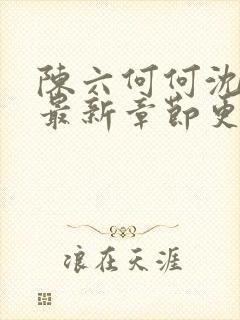 陳六何何沈
最新章節更
浪在天涯